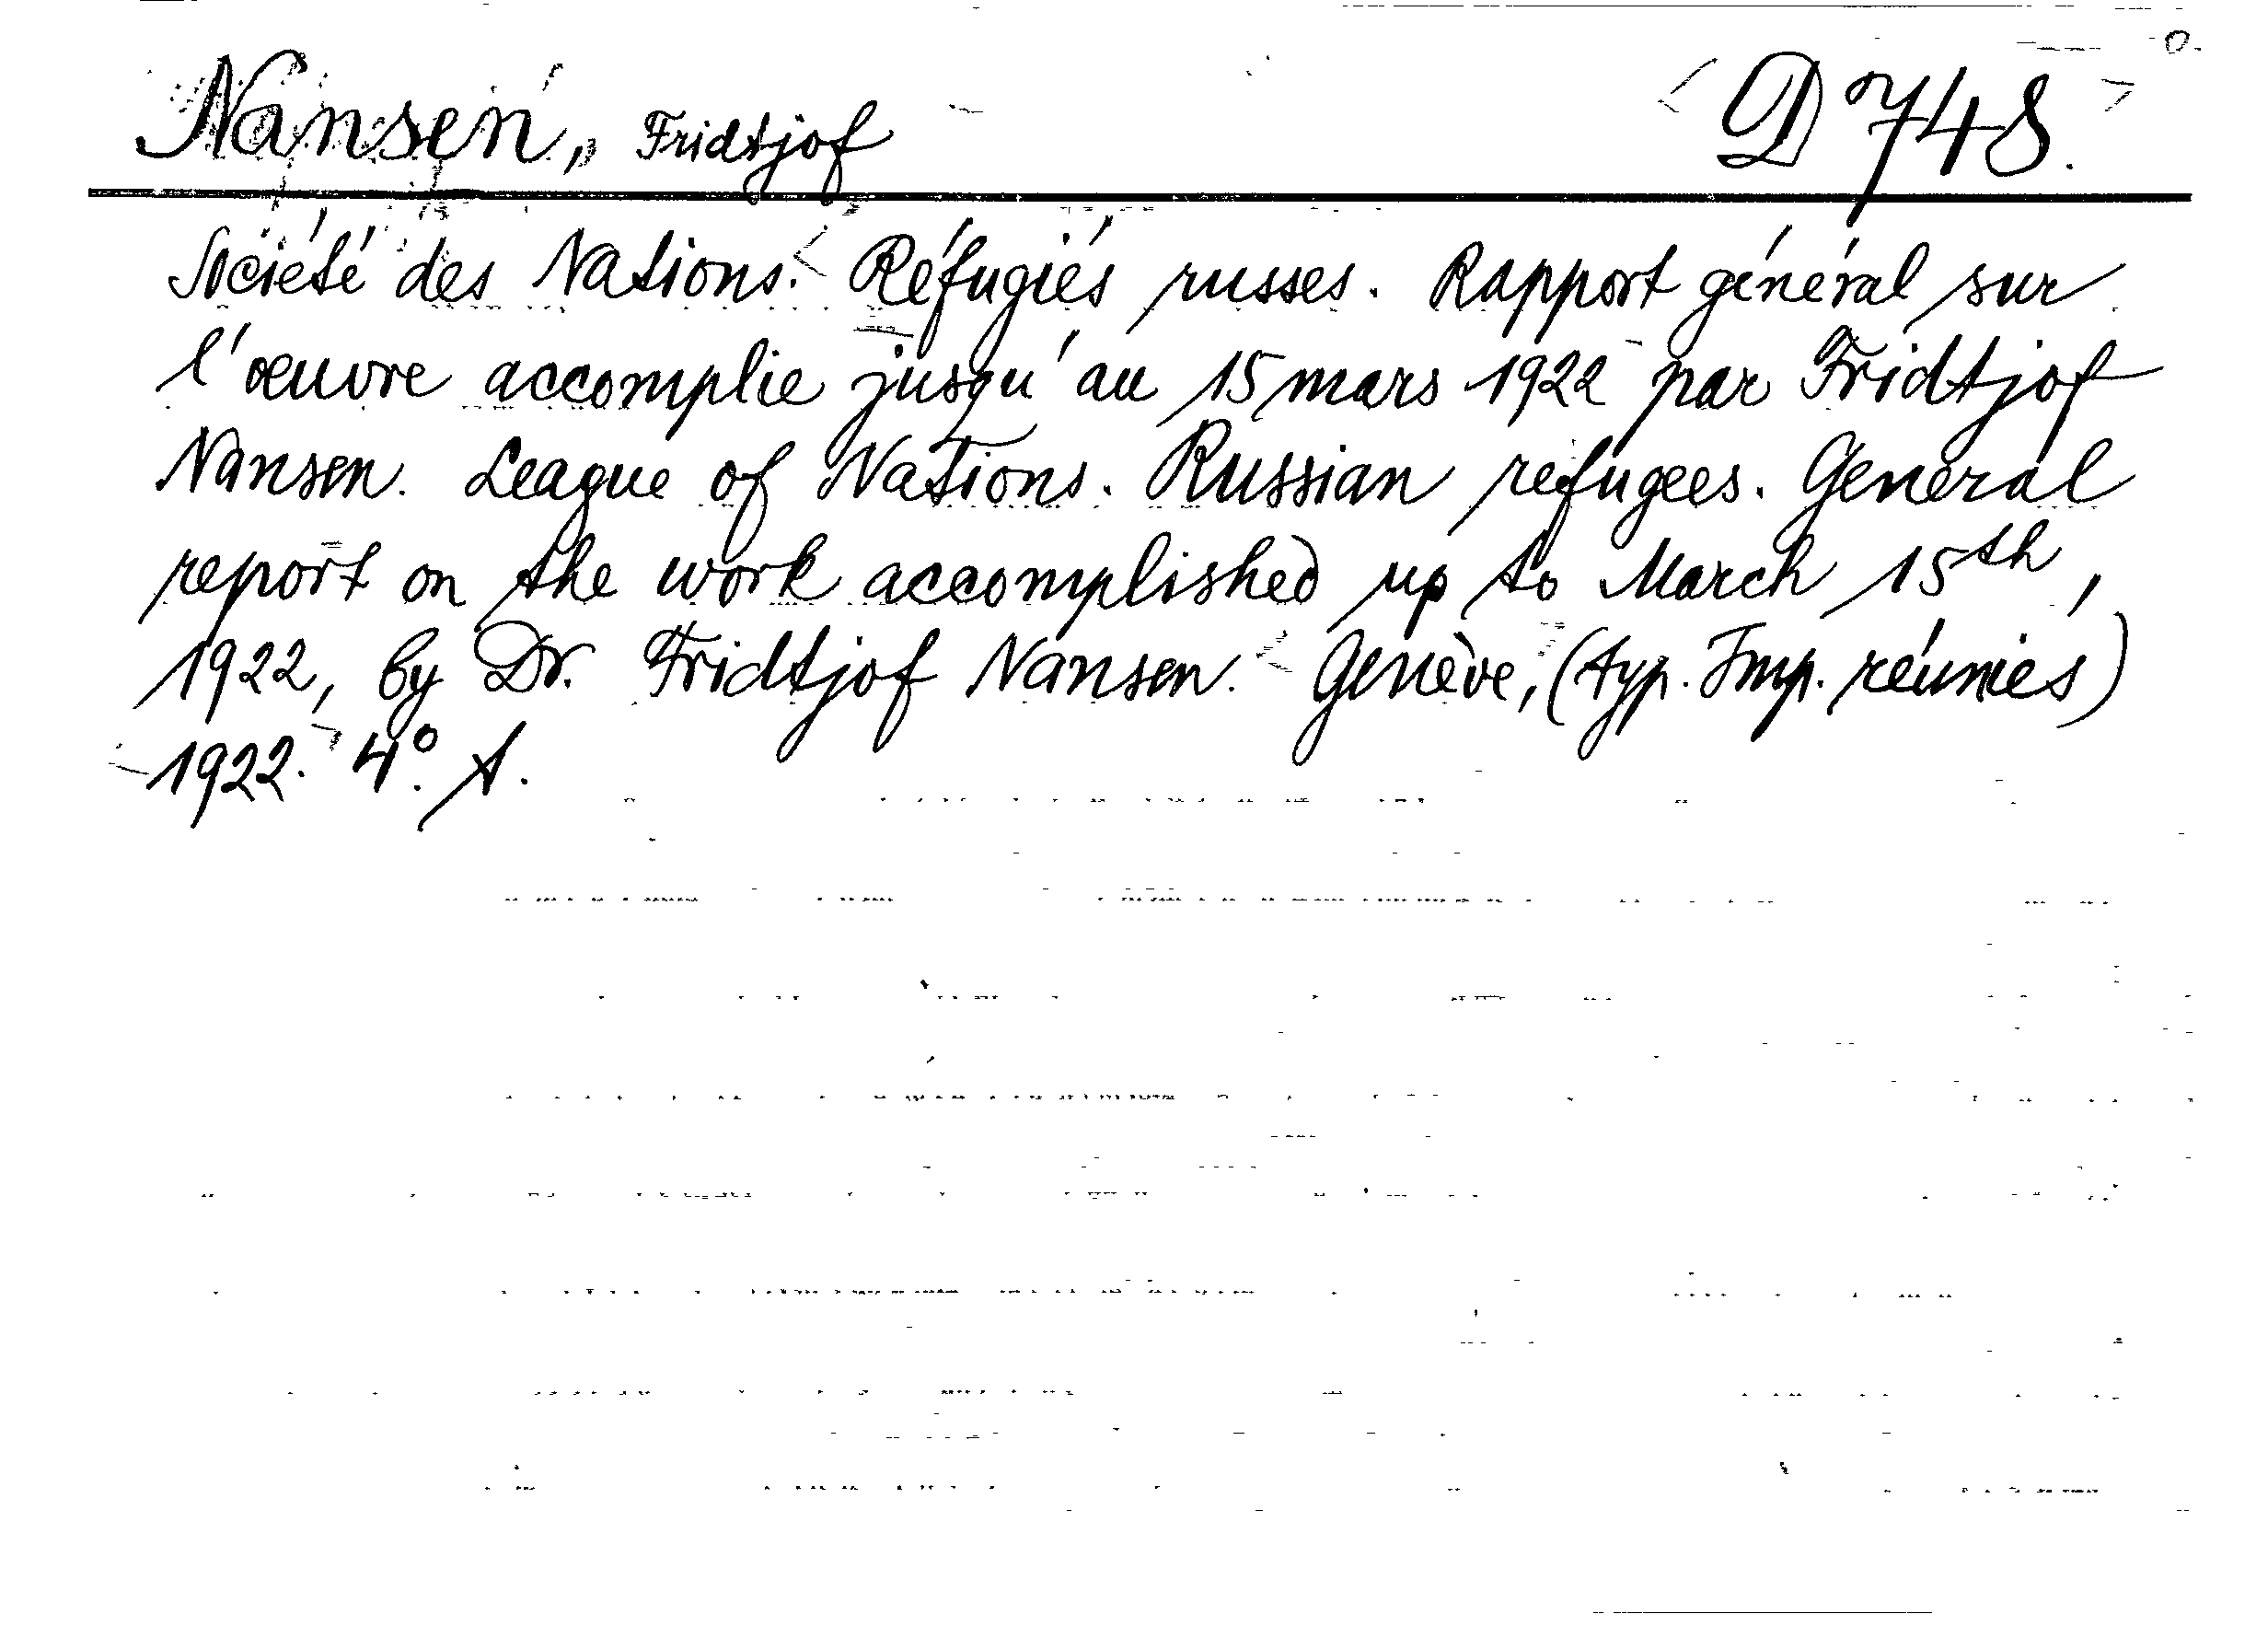 Nansen, Fridtjof D 748.
Société des Nations. Réfugiés russes. Rapport général sur
l'oeuvre accomplie jusqu'au 15 mars 1922 par Fridtjof
Nansen. League of Nations. Russian refugees. General
report on the work accomplished up to March 15th,
1922, by Dr. Fridtjof Nansen. Genève, (typ. Imp. réunies)
1922. 4°.